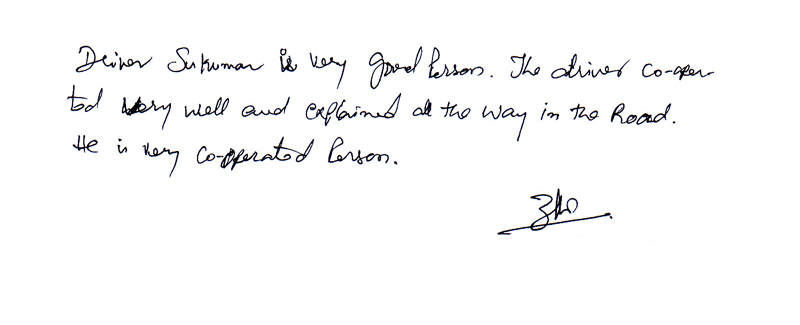 Driver Sukumar is very good Person. The driver co-oper-
ted very well and explained all the way in the Road.
He is very co-operated Person.